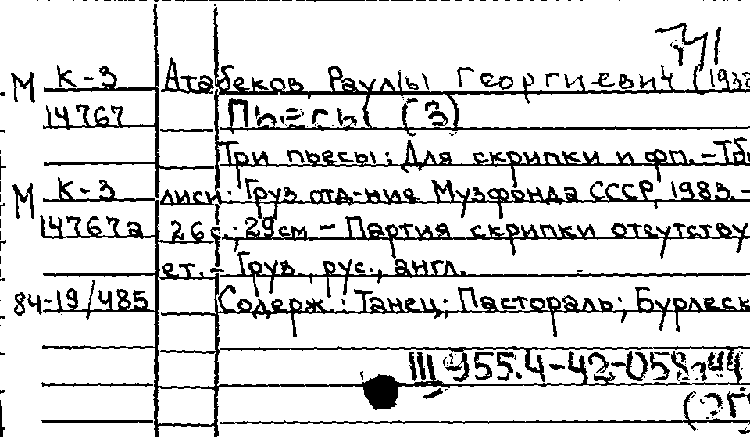 М К-3 Атабеков, Раул(ы) Георгиевич (1932
14767 Пьесы (3)
Три пьесы: Для скрипки и фп. – Тби
М К-3 лиси: Груз. отд-ния Музфонда СССР, 1983. –
14767а 26 с.; 29см – Партия скрипки отсутству
ет. – Груз., рус., англ.
84-19/485 Содерж.: Танец; Пастораль; Бурлеск
III 955.4-42-058